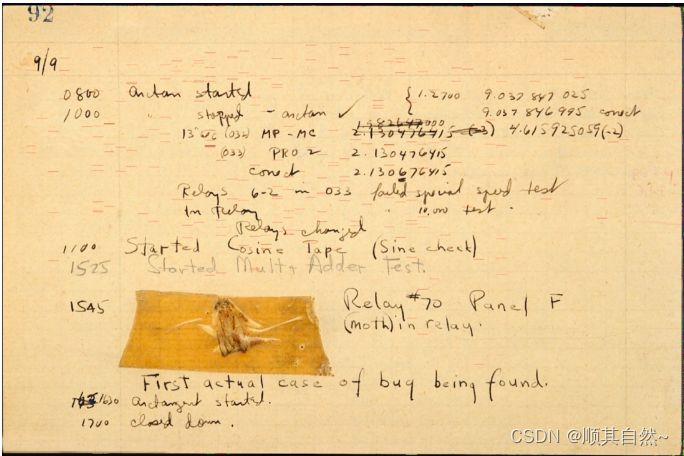 92
9/9
0800 Antan started { 1.2700 9.037 847 025
1000 " stopped - antan ✓ 9.037 846 995 correct
13" uc (032) MP - MC 2.130476415 (-3) 4.615925059(-2)
(033) PRO 2 2.130476415
correct 2.130676415
Relays 6-2 in 033 failed special speed test
In Relay " 10,000 test .
Relays changed
1100 Started Cosine Tape (Sine check)
1525 Started Mult + Adder Test.
1545 Relay #70 Panel F
(moth) in relay.
First actual case of bug being found.
1630 antangent started.
1700 closed down .
CSDN @顺其自然~